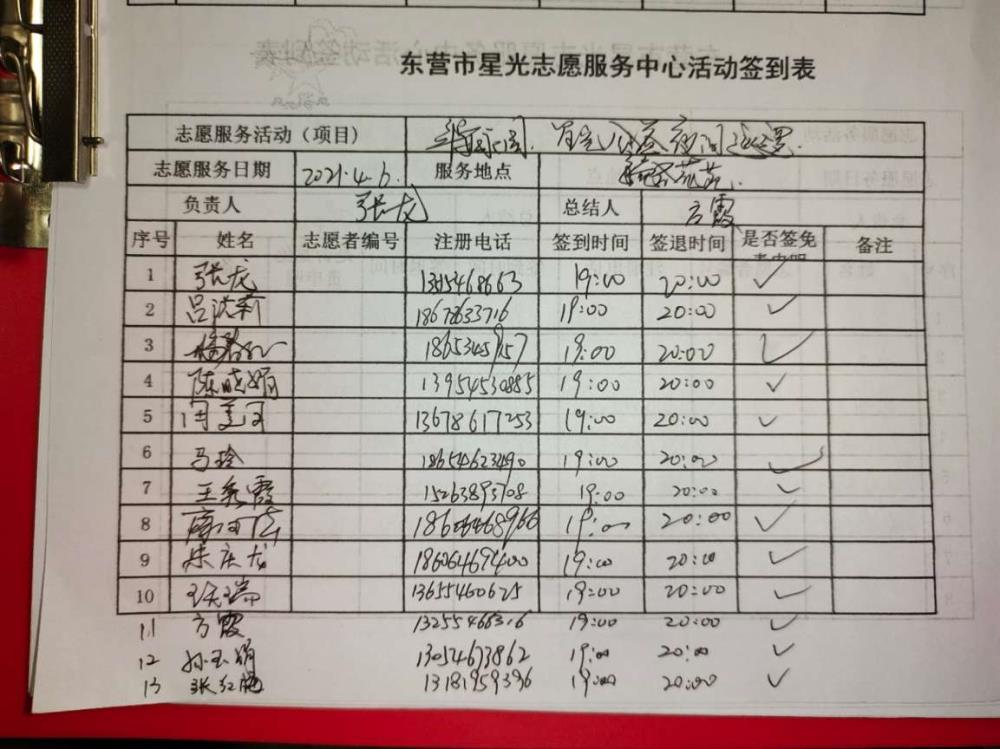 东营市星光志愿服务中心活动签到表
志愿服务活动（项目）
志愿服务日期 2021.4.6. 服务地点
负责人 张龙 总结人 方霞
序号 姓名 志愿者编号 注册电话 签到时间 签退时间 是否签免 备注
1 张龙 19:00 20:00 ✓
2 吕洪莉 18678633716 19:00 20:00 ✓
3 19:00 20:00 ✓
4 陈晓娟 13954530885 19:00 20:00 ✓
5 闫美同 13678617253 19:00 20:00 ✓
6 马玲 18654623490 19:00 20:00 ✓
7 王秀霞 15263893708 19:00 20:00 ✓
8 19:00 20:00 ✓
9 宋庆龙 18606469400 19:00 20:00 ✓
10 13655460625 19:00 20:00 ✓
11 方霞 13255466316 19:00 20:00 ✓
12 孙玉娟 13054673862 19:00 20:00 ✓
13 张红艳 13181959396 19:00 20:00 ✓